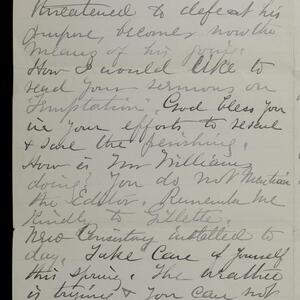 threatened to defeat his
purpose, becomes now the
means of his going.
How I would like to
read your sermons on
Temptation. God bless you
in your efforts to rescue
& save the perishing.
How is Mr Williams
doing? You do not mention
the Editor. Remember me
kindly to Gillette.
New Consistory installed to
day. Take Care of yourself
this spring. The weather
is trying & you can not